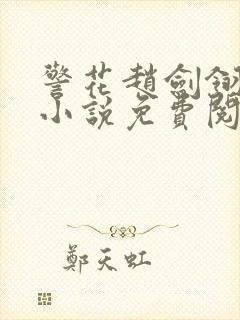 警花趙劍翎
小說免費閱
鄭天虹